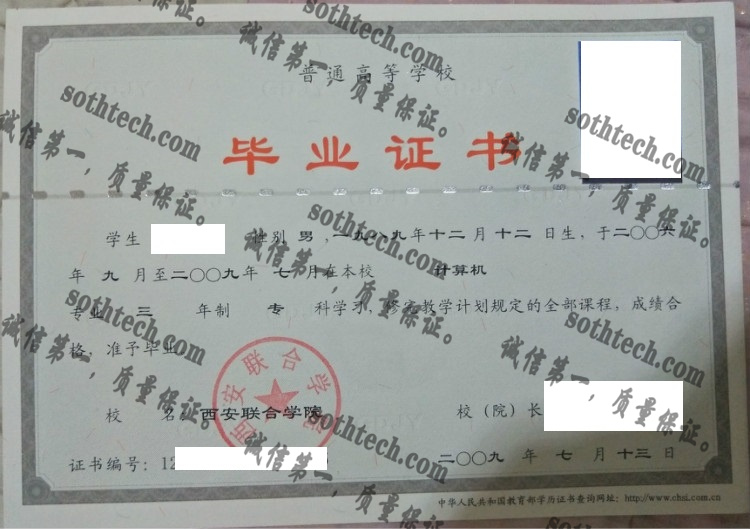 普通高等学校
毕业证书
学生 性别 男 ,一九八九年十二月十二日生,于二〇〇六
年 九 月至二〇〇九年 七 月在本校 计算机
专业 三 年制 专 科学习,修完教学计划规定的全部课程,成绩合
格,准予毕业
校 名: 西安联合学院 校(院)长
证书编号:12
二〇〇九 年 七 月 十三 日
中华人民共和国教育部学历证书查询网址:http://www.chsi.com.cn
西安联合学院
sothtech.com
诚信第一,质量保证。
sothtech.com
诚信第一,质量保证。
sothtech.com
诚信第一,质量保证。
sothtech.com
诚信第一,质量保证。
sothtech.com
诚信第一,质量保证。
sothtech.com
诚信第一,质量保证。
sothtech.com
诚信第一,质量保证。